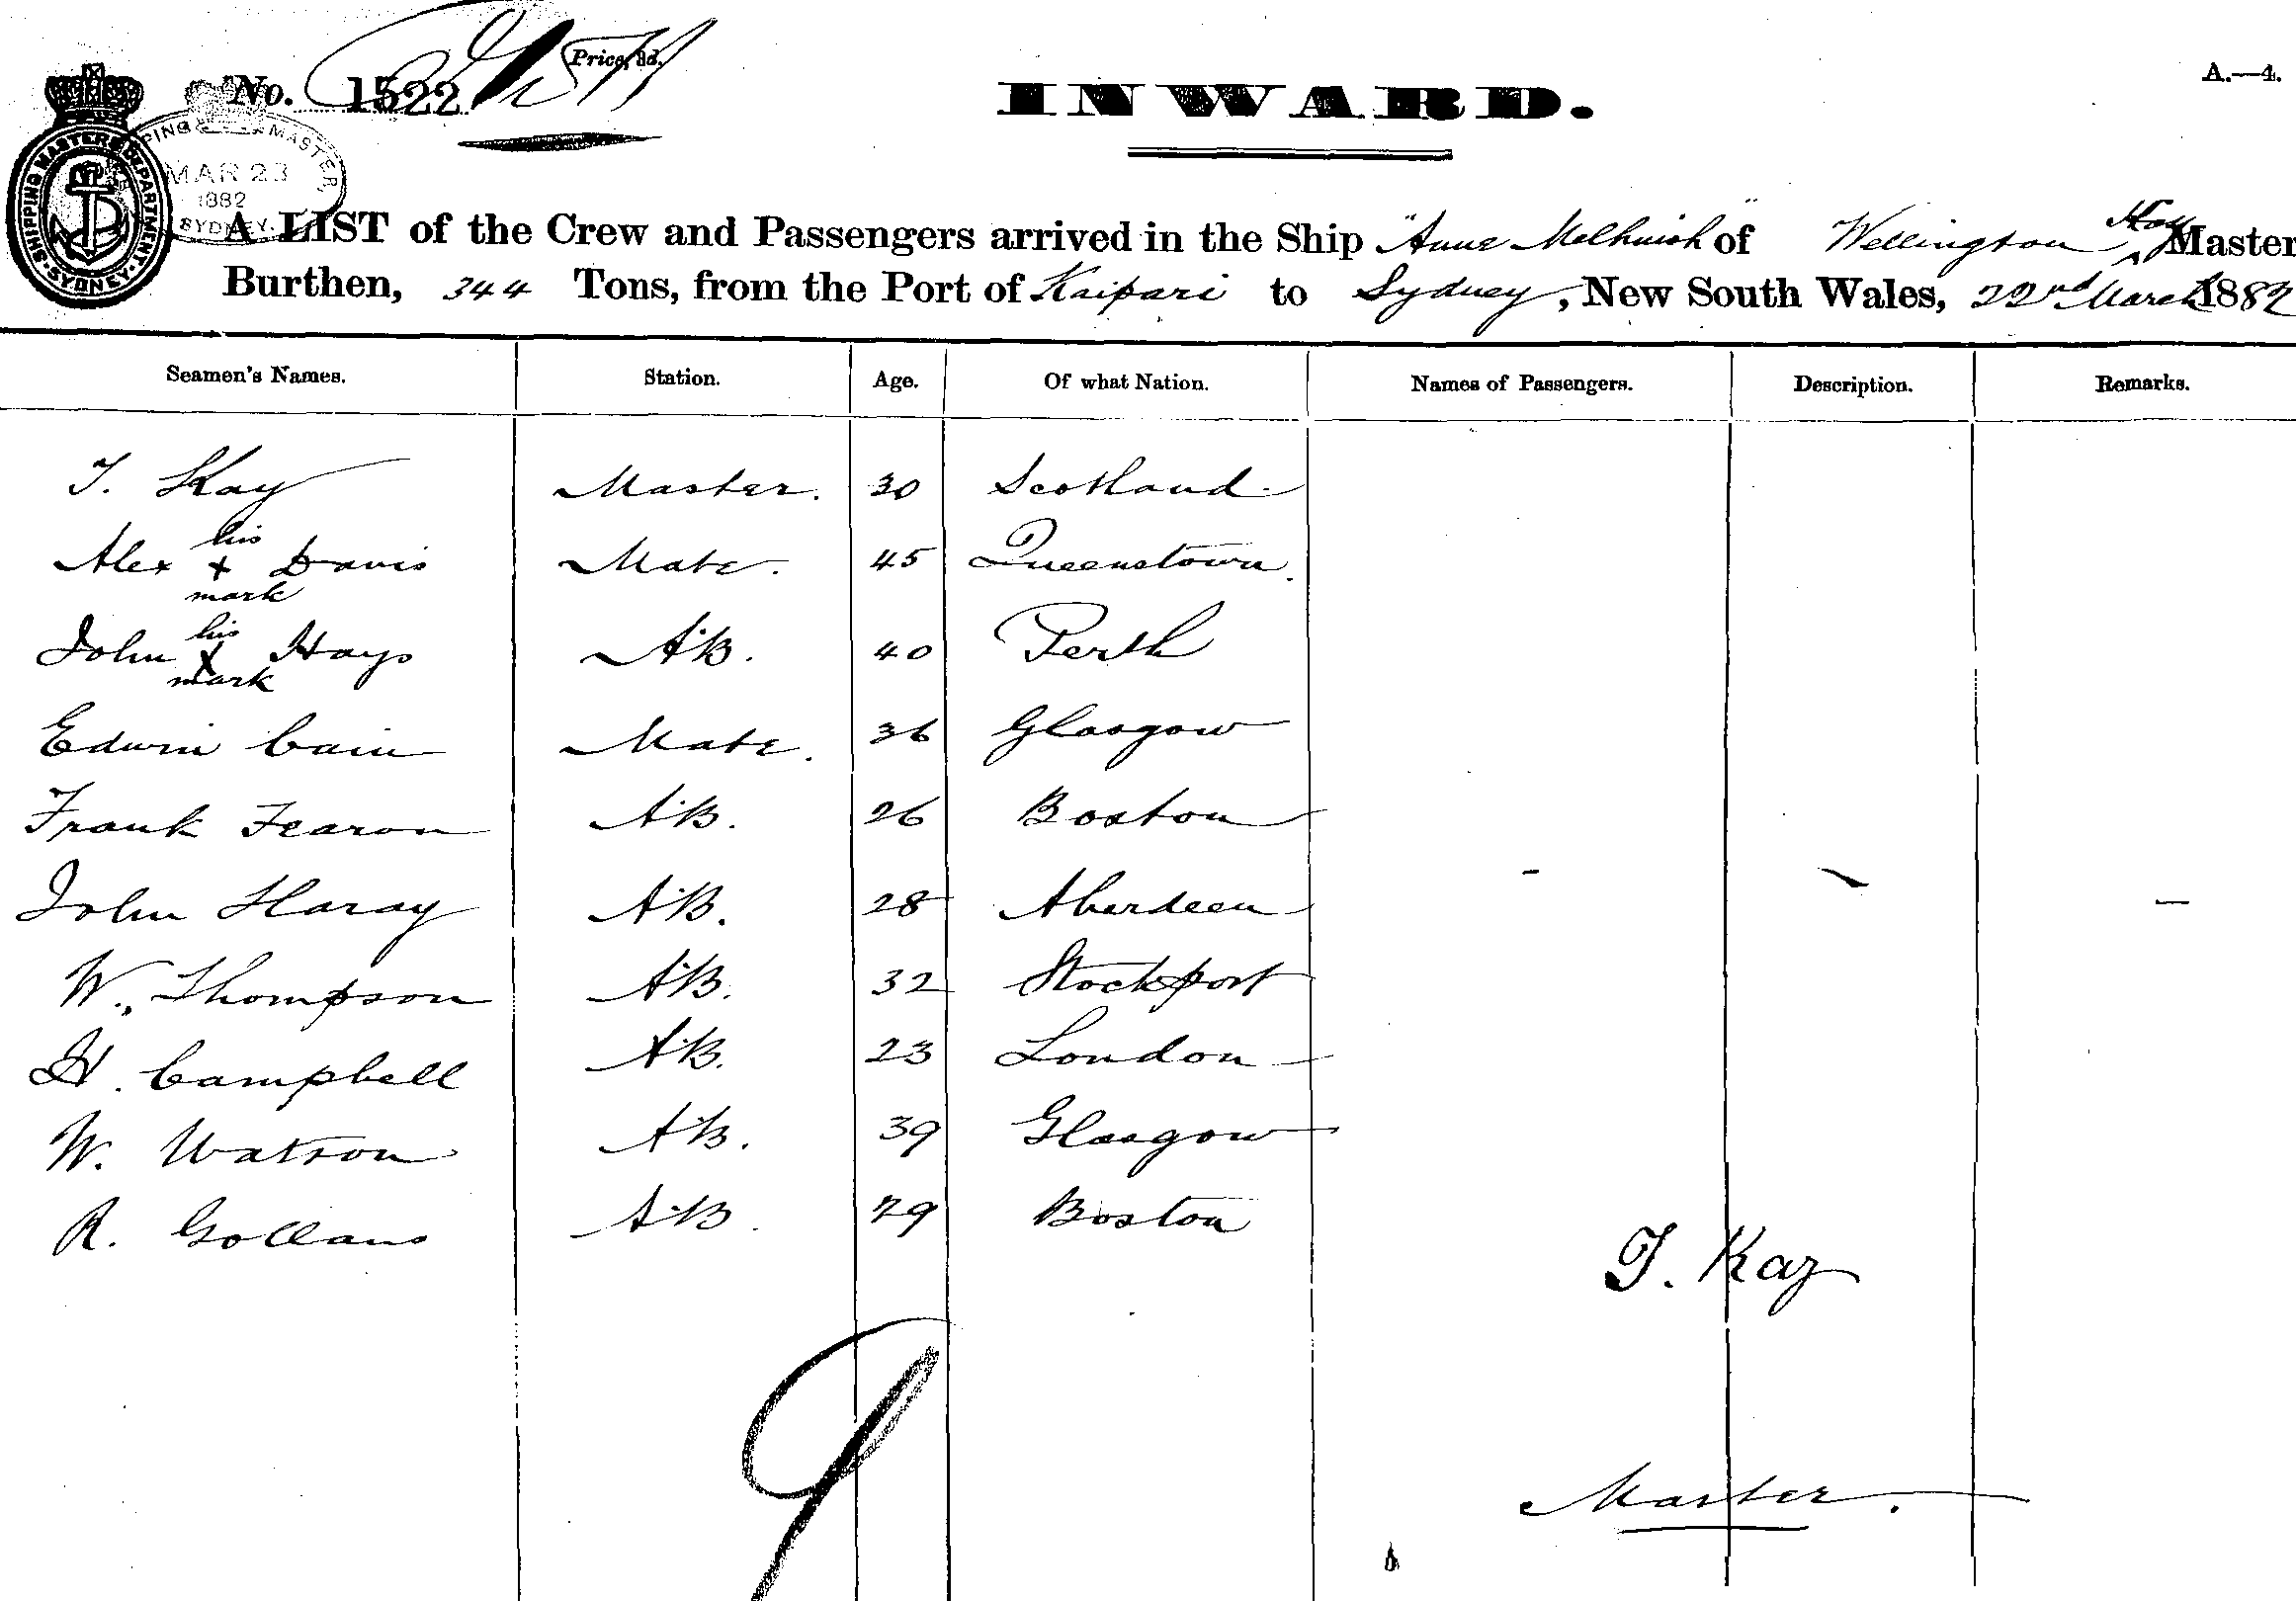 No. 1522 Price, 3d.
A.—4.
INWARD.
SHIPPING MASTERS DEPARTMENT. SYDNEY.
SHIPPING MASTER,
MAR 23
1882
SYDNEY.
A LIST of the Crew and Passengers arrived in the Ship "Anne Melhuish" of Wellington Kay Master
Burthen, 344 Tons, from the Port of Kaipari to Sydney, New South Wales, 22nd March 1882
Seamen's Names. Station. Age. Of what Nation. Names of Passengers. Description. Remarks.
T. Kay Master. 30 Scotland
Alex his + mark Davis Mate. 45 Queenstown.
John his X mark Hays AB. 40 Perth
Edwin Cain Mate. 36 Glasgow
Frank Fearon AB. 26 Boston
John Haray AB. 28 Aberdeen
W. Thompson AB. 32 Stockport
H. Campbell AB. 23 London
W. Watson AB. 39 Glasgow
R. Gollans AB. 29 Boston
T. Kay
Master.
9